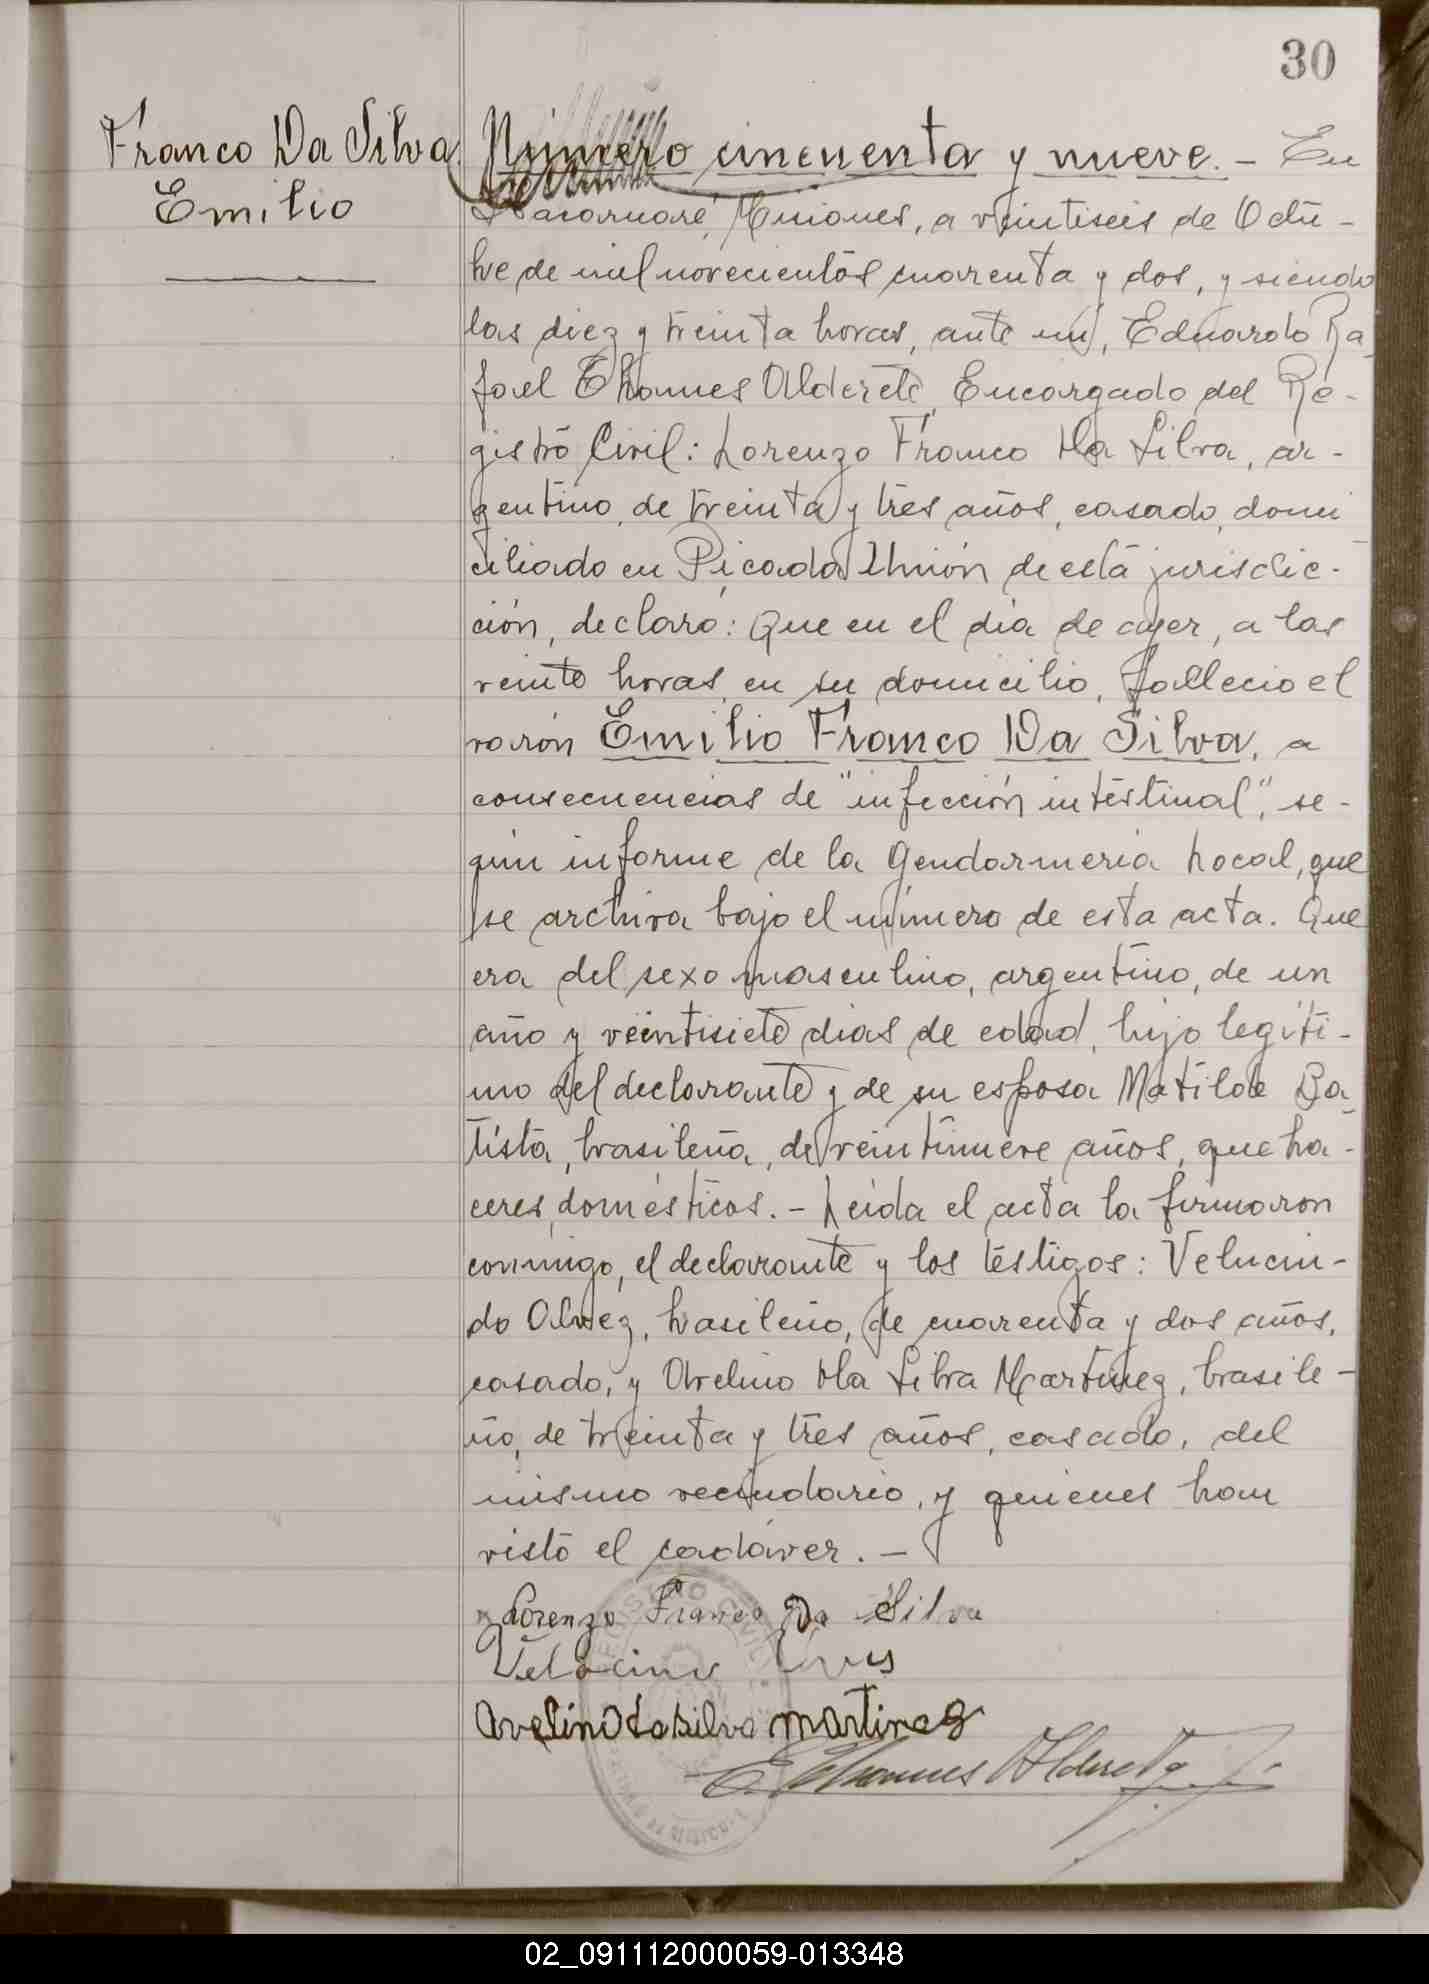 30
Franco Da Silva
Emilio
Número cincuenta y nueve. - En
Misiones, a veintiseis de Octu-
bre de mil novecientos cuarenta y dos, y siendo
las diez y treinta horas, ante mí, Eduardo Ra-
fael Thomes Alderete, Encargado del Re-
gistro Civil: Lorenzo Franco Da Silva, ar-
gentino, de treinta y tres años, casado, domi-
ciliado en Picada Unión de esta jurisdic-
ción, declaró: Que en el dia de ayer, a las
veinte horas, en su domicilio, falleció el
varón Emilio Franco Da Silva, a
consecuencias de "infección intestinal", se-
gún informe de la Gendarmeria Local, que
se archiva bajo el número de esta acta. Que
era del sexo masculino, argentino, de un
año y veintisiete dias de edad, hijo legíti-
mo del declarante y de su esposa Matilde Ba-
tista, brasileña, de veintinueve años, queha-
ceres domésticos. - Leida el acta la firmaron
conmigo, el declarante y los testigos: Velucin-
do Alvez, brasileño, de cuarenta y dos años,
casado, y Avelino Da Silva Martinez, brasile-
ño, de treinta y tres años, casado, del
mismo vecindario, y quienes han
visto el cadáver. -
Lorenzo Franco Da Silva
Avelino da silva martinez
E Thomes Alderete
REGISTRO CIVIL
02_091112000059-013348